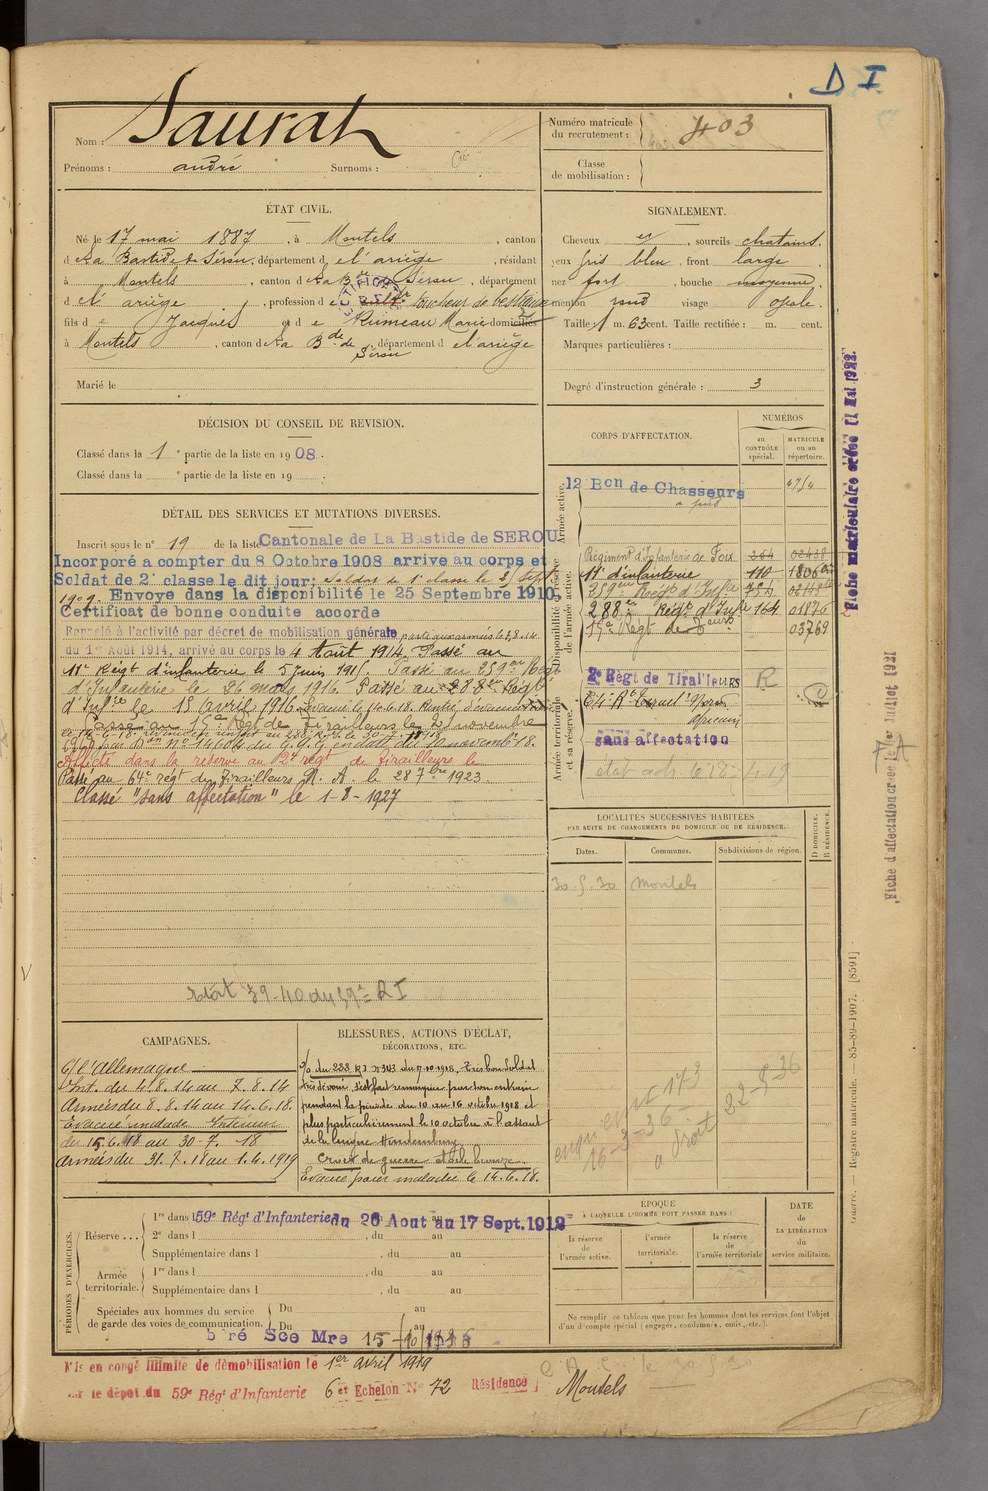 D I
Nom : Saurat
Prénoms : andré Surnoms :
Numéro matricule
du recrutement : 403
Classe
de mobilisation :
ÉTAT CIVIL.
Né le 17 mai 1887, à Montels, canton
d e La Bastide de Sérou, département d e l'ariège, résidant
à Montels, canton d e La B de de Sérou, département
d e l'ariège, profession d e toucheur de bestiaux
fils d e Jacques et d e Rumeau Marie domiciliés
à Montels, canton d e La B de de Sérou, département d e l'ariège
Marié le
SIGNALEMENT.
Cheveux et, sourcils chatains.
yeux gris bleu, front large
nez fort, bouche moyenne
menton rond visage ovale.
Taille 1 m. 63 cent. Taille rectifiée : m. cent.
Marques particulières :
Degré d'instruction générale : 3
DÉCISION DU CONSEIL DE REVISION.
Classé dans la 1 e partie de la liste en 1908.
Classé dans la e partie de la liste en 19 .
DÉTAIL DES SERVICES ET MUTATIONS DIVERSES.
Inscrit sous le n° 19 de la liste Cantonale de La Bastide de SEROU
Incorporé a compter du 8 Octobre 1908 arrive au corps et
Soldat de 2e classe le dit jour; Soldat de 1e classe le 25 Sept
1909. Envoye dans la disponibilité le 25 Septembre 1910.
Certificat de bonne conduite accorde
Rappelé à l'activité par décret de mobilisation générale parti aux armées le 8.8.14
du 1er Août 1914, arrivé au corps le 4 Août 1914. Passé au
11e Régt d'infanterie le 5 juin 1915. Passé au 259eme Régt
d'Infanterie le 26 mars 1916. Passé au 288eme Régt
d'Infie le 18 avril 1916. Evacué le 14.6.18.
Passé au 15e Régt de Tirailleurs le 21 novembre
1918 par Don N° 14604 du G.Q.G en date du 10 novembre 18.
Affecté dans la réserve au 2e régt de tirailleurs le
Passé au 64e régt de Tirailleurs N. A. le 28 7bre 1923
Classé "sans affectation" le 1-8-1927
état 39-40 du 59e RI
CORPS D'AFFECTATION.
NUMÉROS
au
CONTRÔLE
spécial.
MATRICULE
ou au
répertoire.
Armée active.
12 Bon de Chasseurs
à pied
Disponibilité et réserve
de l'armée active.
Régiment d'Infanterie de Foix 364 02438
11e d'infanterie 110
259eme Régt d'Infie 754
288eme Régt d'Infie 164 01876
15e Régt de Teurs 03769
Armée territoriale
et sa réserve.
2e Règt de Tirailleurs R
64e Rt Tiraill Nord
Africain
sans affectation
LOCALITÉS SUCCESSIVES HABITÉES
PAR SUITE DE CHANGEMENTS DE DOMICILE OU DE RÉSIDENCE.
Dates. Communes. Subdivisions de région. D DOMICILE. R RÉSIDENCE.
30.5.30 Montels
CAMPAGNES.
C/ l'Allemagne
Int. du 4.8.14 au 7.8.14
Armées du 8.8.14 au 14.6.18.
Evacué malade Intérieur
du 15.6.18 au 30-7.18
Armées du 31.7.18 au 1.4.1919
BLESSURES, ACTIONS D'ÉCLAT,
DÉCORATIONS, ETC.
O/o du 288 RI n° 343 du 17.10.1918. Très bon soldat
très dévoué s'est fait remarquer par son entrain
pendant la période du 10 au 16 octobre 1918 et
plus particulièrement le 10 octobre à l'assaut
de la ligne Hindenburg.
Croix de guerre étoile bronze.
Evacué pour maladie le 14.6.18.
16-3-36
à droit
22-5-36
PÉRIODES D'EXERCICES.
Réserve ... 1re dans l 59e Régt d'Infanterie du 26 Aout au 17 Sept. 1912
2e dans l , du au
Supplémentaire dans l , du au
Armée
territoriale. 1re dans l , du au
Supplémentaire dans l , du au
Spéciales aux hommes du service
de garde des voies de communication. Du au
Du au
béré Sce Mre 15-10-1936
ÉPOQUE
À LAQUELLE L'HOMME DOIT PASSER DANS :
la réserve
de
l'armée active.
l'armée
territoriale.
la réserve
de
l'armée territoriale
DATE
de
LA LIBÉRATION
du
service militaire.
Ne remplir ce tableau que pour les hommes dont les services font l'objet
d'un décompte spécial (engagés, condamnés, omis, etc.).
Mis en congé illimité de démobilisation le 1er avril 1919
par le dépot du 59e Régt d'Infanterie 6 et Echelon N° 72 Résidence Montels
Fiche matriculaire créée 11 Mai 1923.
Fiche d'affectation créée le 1er Juillet 1921
Guerre. — Registre matricule. — 85-89-1907. [8591]